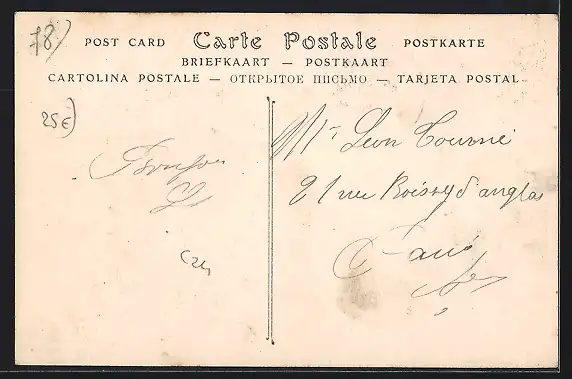 78)
POST CARD Carte Postale POSTKARTE
BRIEFKAART — POSTKAART
CARTOLINA POSTALE — ОТКРЫТОЕ ПИСЬМО — TARJETA POSTAL
25€)
Mr Léon Tourne
21 rue Boissy d'anglas
Paris
C24